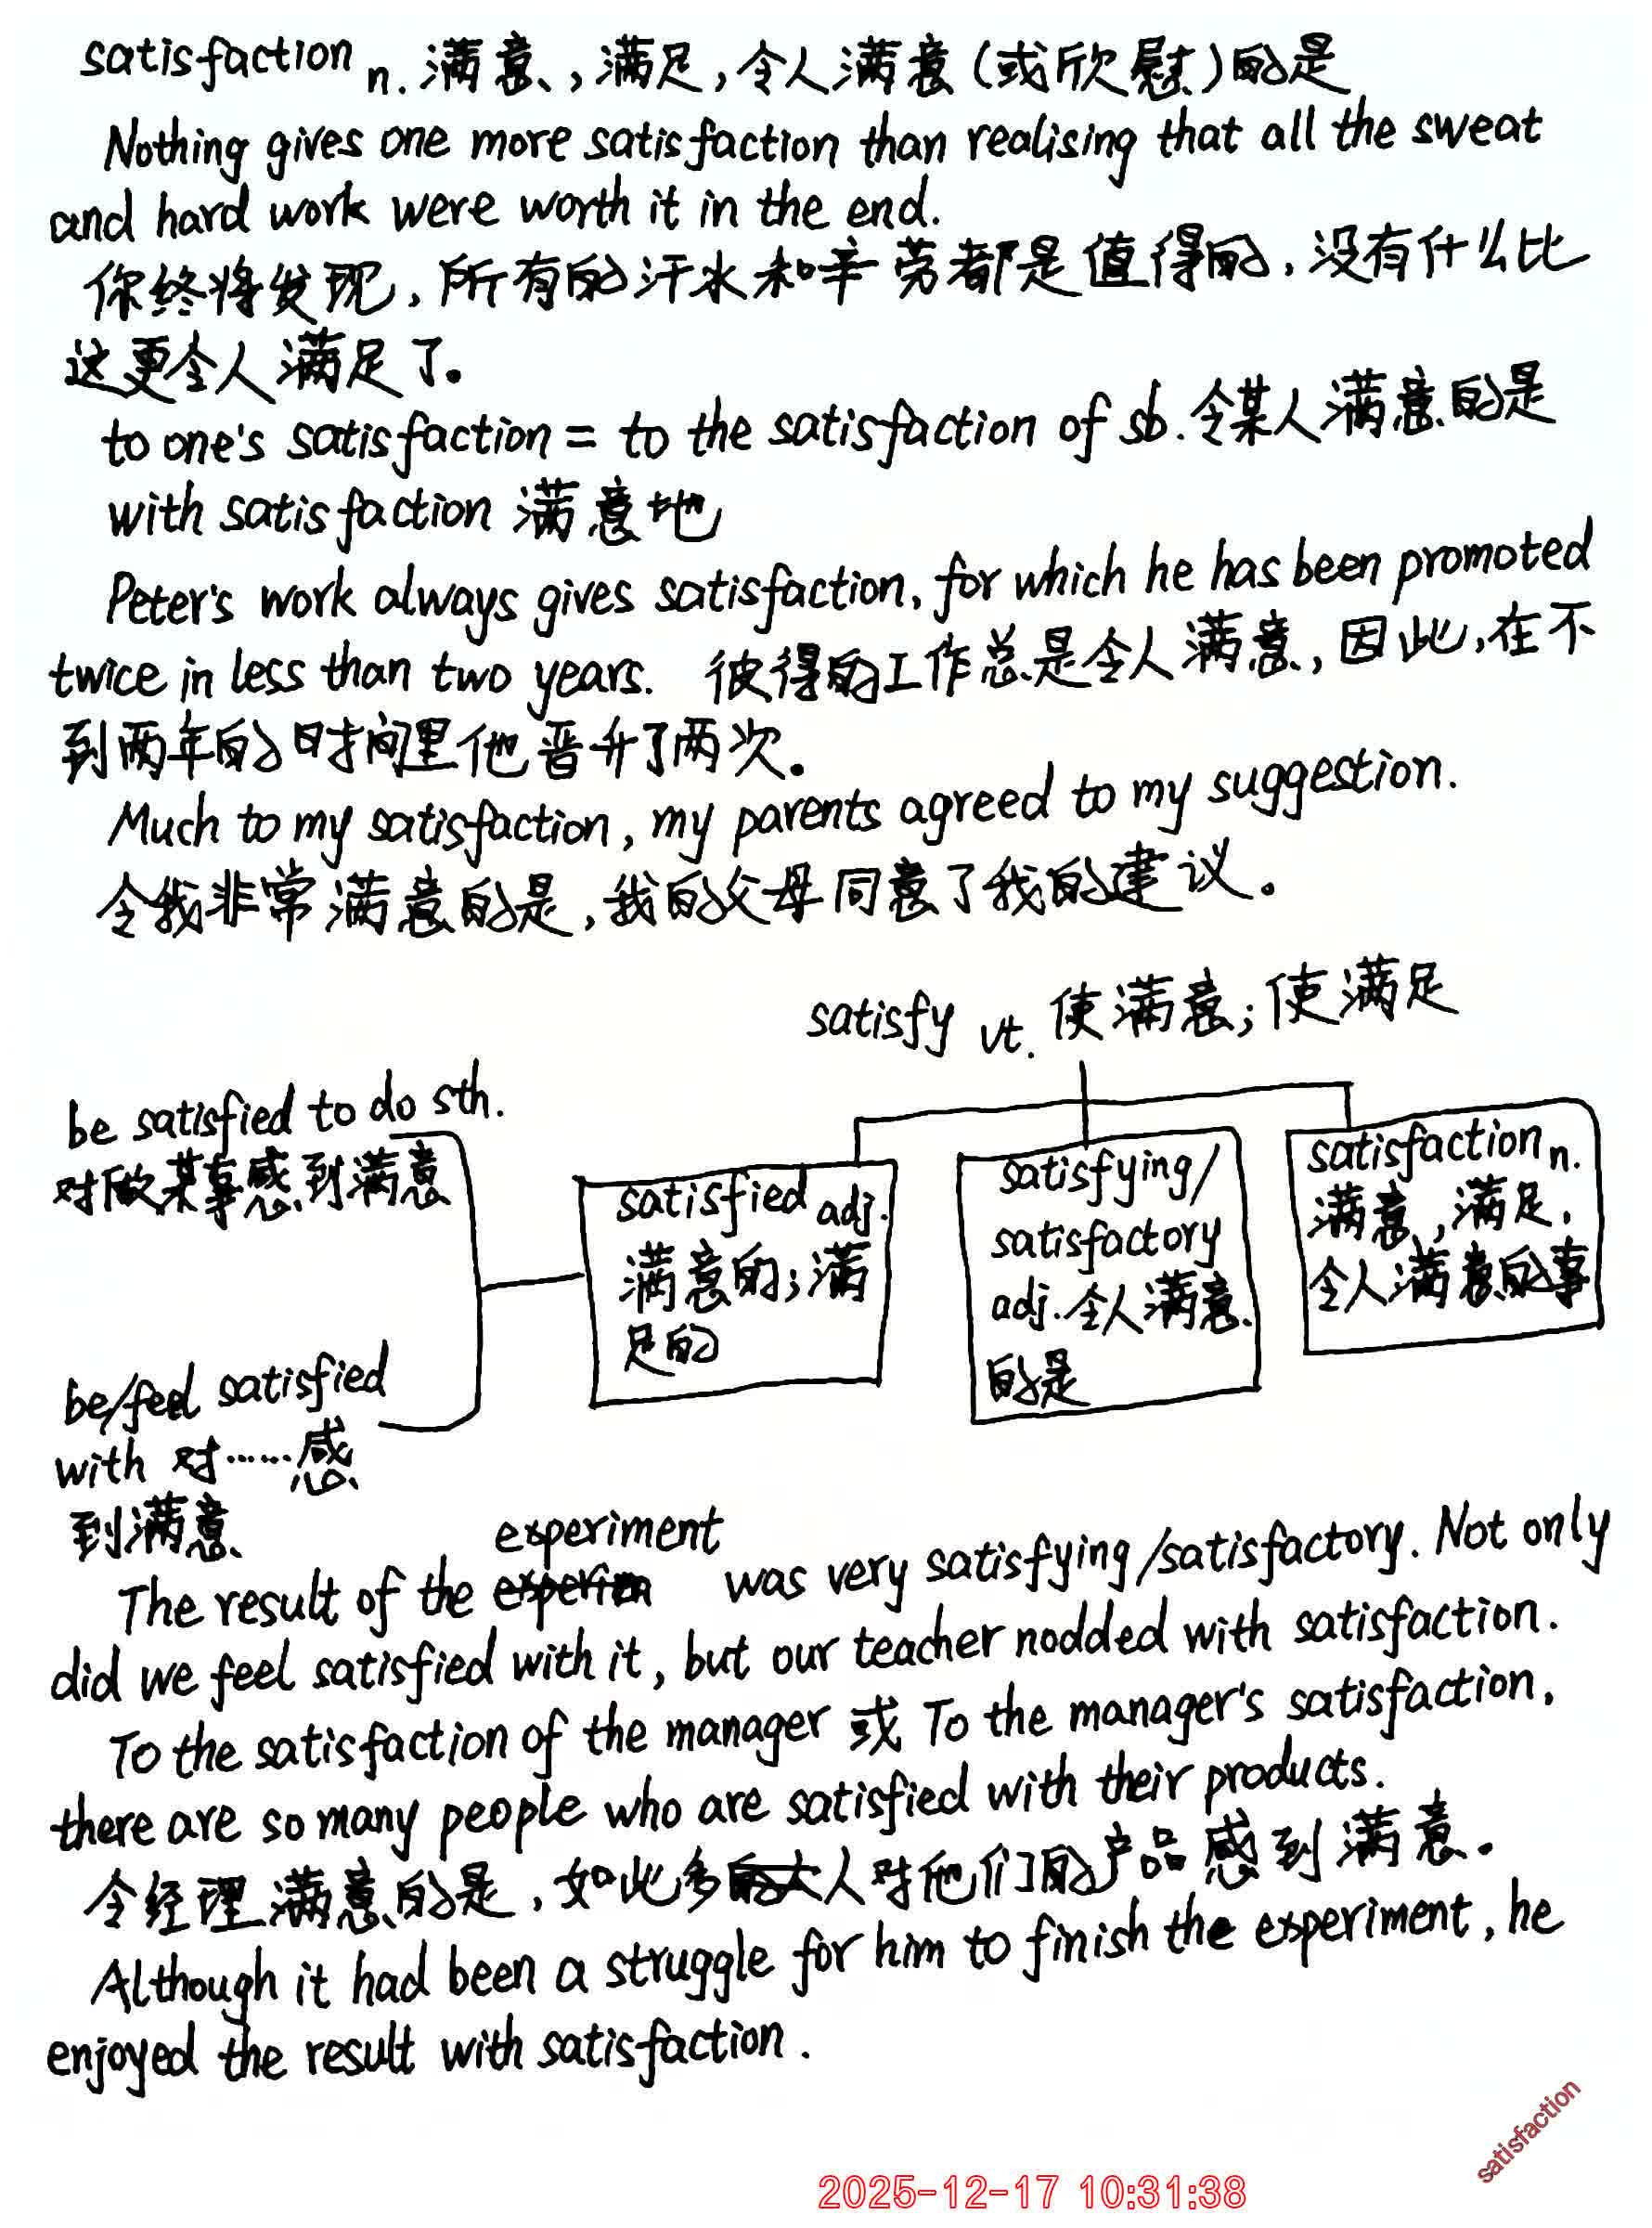 satisfaction n. 满意,满足,令人满意(或欣慰)的是
Nothing gives one more satisfaction than realising that all the sweat
and hard work were worth it in the end.
你终将发现,所有的汗水和辛劳都是值得的,没有什么比
这更令人满足了。
to one's satisfaction = to the satisfaction of sb. 令某人满意的是
with satisfaction 满意地
Peter's work always gives satisfaction, for which he has been promoted
twice in less than two years. 彼得的工作总是令人满意,因此,在不
到两年的时间里他晋升了两次。
Much to my satisfaction, my parents agreed to my suggestion.
令我非常满意的是,我的父母同意了我的建议。
satisfy vt. 使满意;使满足
be satisfied to do sth.
对做某事感到满意
be/feel satisfied
with 对……感
到满意
satisfied adj.
满意的;满
足的
satisfying/
satisfactory
adj. 令人满意
的是
satisfaction n.
满意,满足,
令人满意的事
experiment
The result of the experim was very satisfying/satisfactory. Not only
did we feel satisfied with it, but our teacher nodded with satisfaction.
To the satisfaction of the manager 或 To the manager's satisfaction,
there are so many people who are satisfied with their products.
令经理满意的是,如此多人对他们的产品感到满意。
Although it had been a struggle for him to finish the experiment, he
enjoyed the result with satisfaction.
satisfaction
2025-12-17 10:31:38